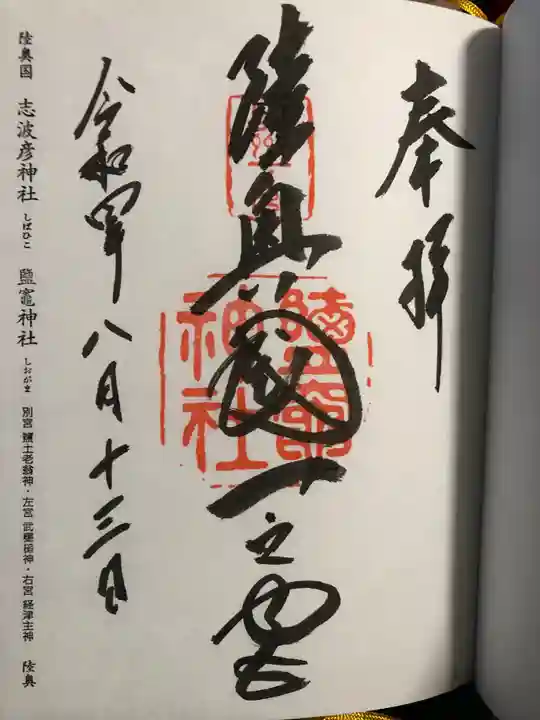 奉拝
陸奥國一之宮
鹽竈
神社
令和四年八月十三日
陸奥国 志波彦神社 しばひこ 鹽竈神社 しおがま 別宮 鹽土老翁神・左宮 武甕槌神・右宮 経津主神 陸奥